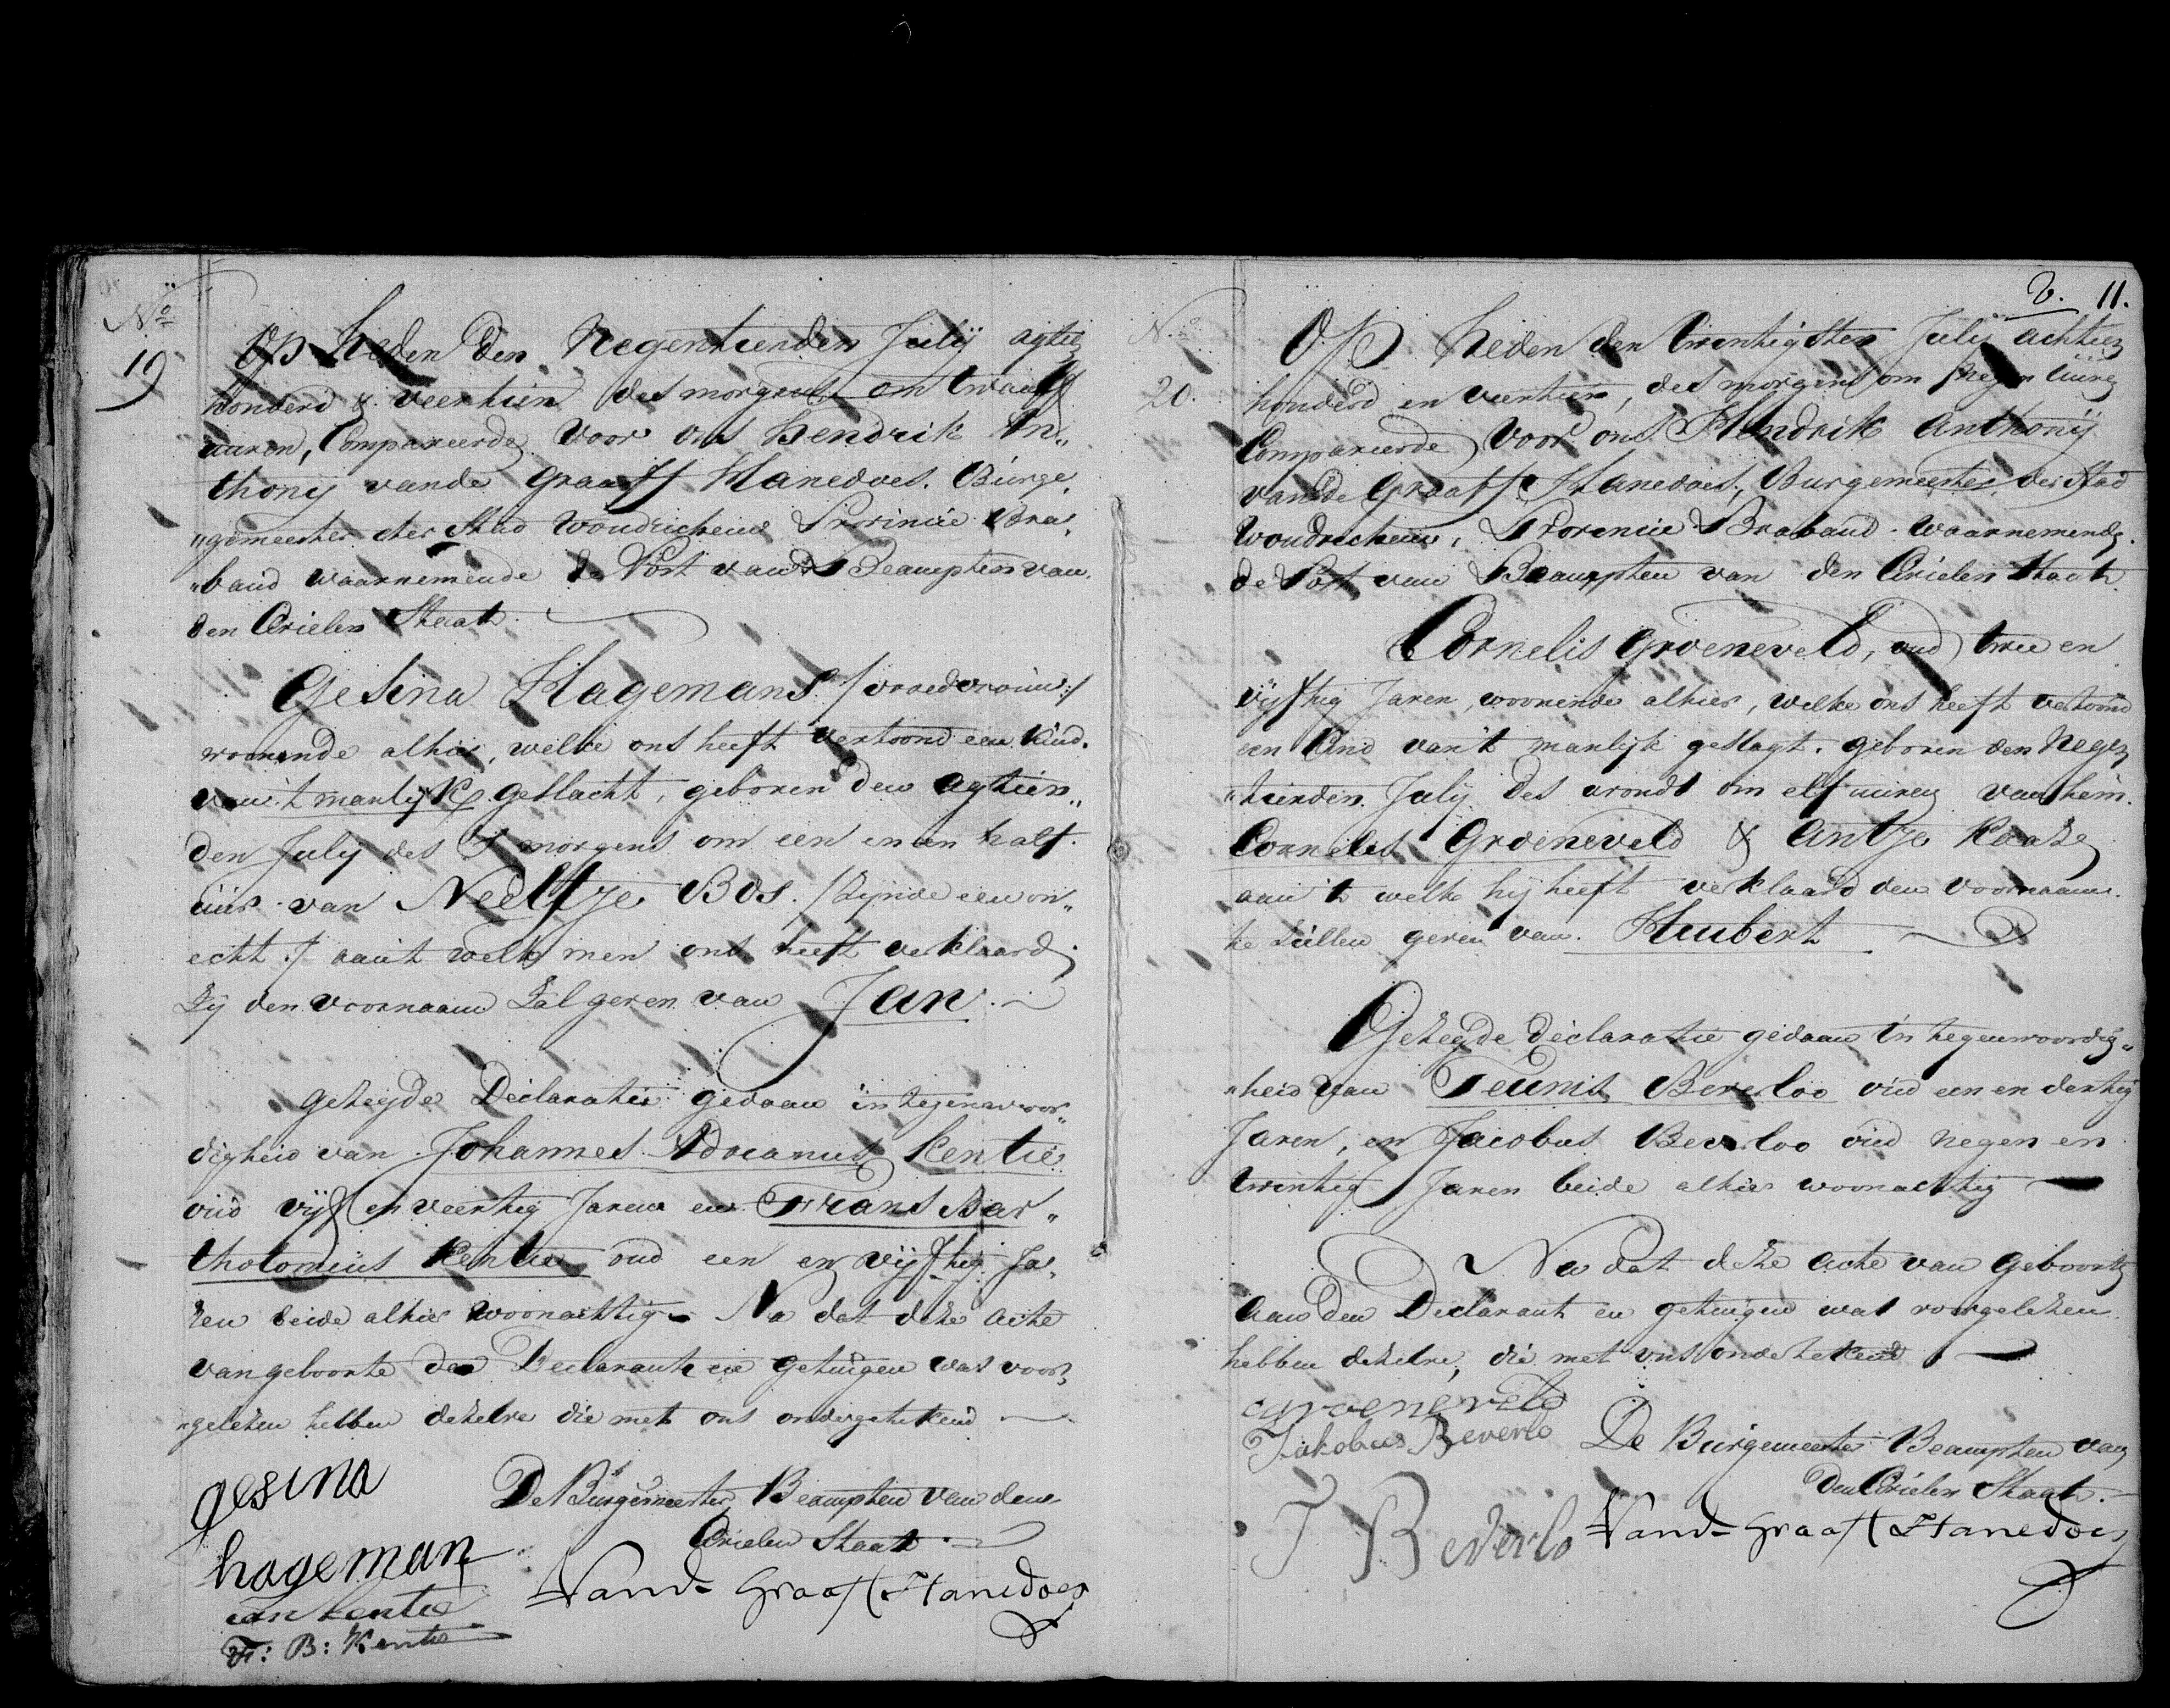 No
19
Op heden den Negentienden Julij agtien
honderd & veertien des morgens om twaalf
uuren, Compareerde voor ons Hendrik An„
thonij vande Graaff Hanedoes. Burge„
„gemeester der Stad Woudrichem Provincie Bra„
„band waarnemende de Post van Beampten van
den Civielen Staat
Gesina Hagemans /:vroedvrouw:/
woonende alhier, welke ons heeft vertoond een kind
van 't manlijk geslacht, geboren den agtien„
den Julij des s morgens om een en een half
uur van Neeltje Bos. /:zijnde een on„
echt:/ aan't welk men ons heeft verklaard
Zij den voornaam Zal geven van Jan.
Gezegde Declaratie gedaan in tegenwoor„
digheid van Johannes Adrianus Kentie
oud vijf en veertig Jaren en Frans Bar„
tholomeus Kentie oud een en vijftig Ja„
ren beide alhier woonachtig – Na dat deze acte
van geboorte den Declarante en getuigen was voor„
„gelezen hebben dezelve die met ons ondergetekend
gesina
hageman
De Burgemeester Beampten van den
Civielen Staat
Vand Graaff Hanedoes
Kentie
F: B: Kentie
V. 11.
No
20.
Op Heden den twentigsten Julij achtien
honderd en veertien, des morgens om negen uuren
Compareerde voor ons Hendrik Anthonij
van de Graaff Hanedoes, Burgemeester der Stad
Woudrichem, Provincie Braband waarnemende
de Post van Beampten van den Civielen Staat
Cornelis Groeneveld, oud twee en
vijftig Jaren, woonende alhier, welke ons heeft vertoond
een kind van't manlijk geslagt. geboren den Negen
„tienden Julij des avonds om elf uuren van hem
Cornelis Groeneveld & Antje
aan 't welk hij heeft verklaard den voornaam
te zullen geven van Huibert
Gezegde declaratie gedaan in tegenwoordig„
„heid van Teunis Beverloo oud een en dertig
Jaren, en Jacobus Beverloo oud negen en
twintig Jaren beide alhier woonachtig
Na dat deze acte van geboorte
aan den Declarant en getuigen was voorgelezen
hebben dezelve, die met ons ondertekend
groeneveld
Jakobus Beverlo
De Burgemeester Beampten van
den Civielen Staat.
T Beverlo
Vand Graaff Hanedoes